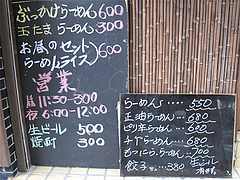 ぶっかけらーめん 600
玉たまらーめん 300
お昼のセット
らーめん ライス 600
営業
昼 11:30-3:00
夜 6:00-12:00
生ビール 500
焼酎 300
らーめん..... 550
正油らーめん... 680
ピリ辛らーめん... 680
チャーらーめん... 680
もつにらーめん... 700
餃子... 380
生ビール